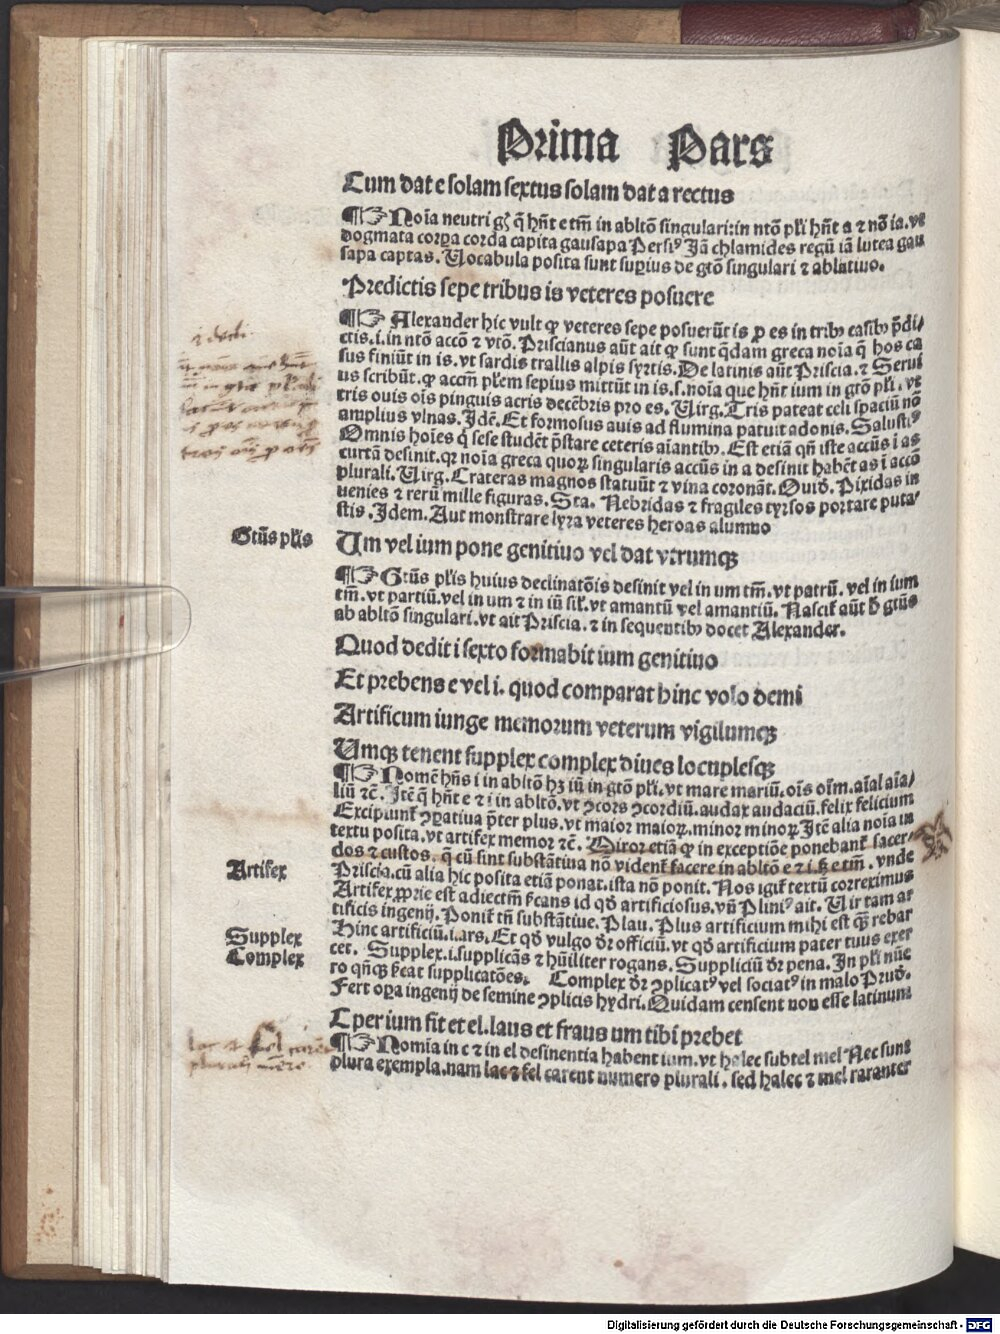 Prima Pars
Cum dat e solam sextus solam dat a rectus
¶☞Noīa neutri gͥs q̄ hn̄t e tm̄ in abltō singulari: in ntō pl̄i hn̄t a ⁊ nō ia. vt
dogmata corꝑa corda capita gausapa Persiꝰ Iā chlamides regū iā lutea gau
sapa captas. Uocabula posita sunt suꝑius de gtō singulari ⁊ ablatiuo.
Predictis sepe tribus is veteres posuere
¶☞ Alexander hic vult ꝙ veteres sepe posuerūt is ꝓ es in tribꝰ casibꝰ p̄di/
ctis. i. in ntō accō ⁊ vtō. Priscianus aūt ait ꝙ sunt q̄dam greca noīa q̄ hos ca
sus finiūt in is. vt sardis trallis alpis syrtis. De latinis aūt Priscia. ⁊ Serui
us scribūt. ꝙ accm̄ pl̄em sepius mittūt in is. s. noīa que hn̄t ium in gtō pl̄i. vt
tris ouis oīs pinguis acris decēbris pro es. Uirg. Tris pateat celi spaciū nō
amplius vlnas. Idē. Et formosus auis ad flumina patuit adonis. Salustiꝰ
Omnis hoīes q̇ sese studēt p̄stare ceteris aīantibꝰ. Est etiā qn̄ iste accūs ī as
curtā desinit. qꝛ noīa greca quoꝝ singularis accūs in a desinit habēt as ī accō
plurali. Uirg. Crateras magnos statuūt ⁊ vina coronāt. Ouid. Pixidas in
uenies ⁊ rerū mille figuras. Sta. Nebridas ⁊ fragiles tyrsos portare puta/
stis. Idem. Aut monstrare lyra veteres heroas alumno
Gtūs pl̄is
Um vel ium pone genitiuo vel dat vtrumqꝫ
¶☞Gtūs pl̄is huius declinatōis desinit vel in um tm̄. vt patrū. vel in ium
tm̄. vt partiū. vel in um ⁊ in iū sil̄. vt amantū vel amantiū. Nascit̄ aūt h̄ gtūs
ab abltō singulari. vt ait Priscia. ⁊ in sequentibꝰ docet Alexander.
Quod dedit i sexto formabit ium genitiuo
Et prebens e vel i. quod comparat hinc volo demi
Artificum iunge memorum veterum vigilumqꝫ
Umqꝫ tenent supplex complex diues locuplesqꝫ
¶☞Nomē hn̄s i in abltō hꝫ iū in gtō pl̄i. vt mare mariū. oīs oīm. aīal aīa/
liū ⁊c̄. Itē q̄ hn̄t e ⁊ i in abltō. vt ↄcors ↄcordiū. audax audaciū. felix felicium
Excipiunt̄ ↄꝑatiua p̄ter plus. vt maior maioꝝ. minor minoꝝ Itē alia noīa in
textu posita. vt artifex memor ⁊c̄. Miror etiā ꝙ in exceptiōe ponebant̄ sacer/
dos ⁊ custos. q̄ cū sint substātiua nō vident̄ facere in abltō e ⁊ i. sꝫ e tm̄. vnde
Artifex
Priscia. cū alia hic posita etiā ponat. ista nō ponit. Nos igit̄ textū correximus
Artifex ꝓprie est adiectm̄ s̄cans id qd̄ artificiosus. vn̄ Pliniꝰ ait. Uir tam ar
tificis ingenij. Ponit̄ tn̄ substātiue. Plau. Plus artificium mihi est qꝫ rebar
Supplex
Hinc artificiū. i. ars. Et qd̄ vulgo dr̄ officiū. vt qd̄ artificium pater tuus exer
Complex
cet. Supplex. i. supplicās ⁊ hūiliter rogans. Suppliciū dr̄ pena. In pl̄i nūe
ro qn̄qꝫ s̄cat supplicatōes. Complex dr̄ ↄplicatꝰ vel sociatꝰ in malo Prud.
Fert oꝑa ingenij de semine ↄplicis hydri. Quidam censent non esse latinum
C per ium fit et el. laus et fraus um tibi prebet
¶☞Nomīa in c ⁊ in el desinentia habent ium. vt halec subtel mel Nec sunt
plura exempla. nam lac ⁊ fel carent numero plurali. sed halec ⁊ mel raranter
lac et fel caret
plurali nūero
Digitalisierung gefördert durch die Deutsche Forschungsgemeinschaft - DFG